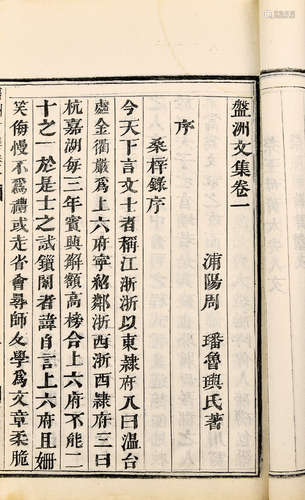 盤洲文集卷一
浦陽周璠魯璵氏著
序
桑梓錄序
今天下言文士者稱江浙浙以東隷府八曰溫台
處金衢嚴爲上六府寧紹鄰浙西浙西隷府三曰
杭嘉湖每三年賓興解額高榜合上六府不能二
十之一於是士之試鎖闈者諱自言上六府且姍
笑侮慢不爲禮或走省會尋師友學爲文章柔脆